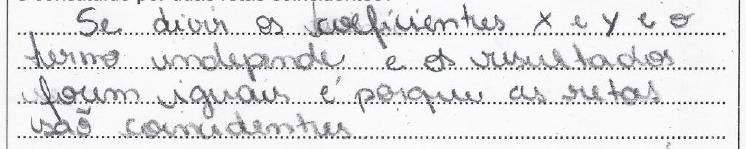 Se divir os coeficientes x e y e o
termo undepende e os resultados
forem iguais é porque as retas
são coincidentes